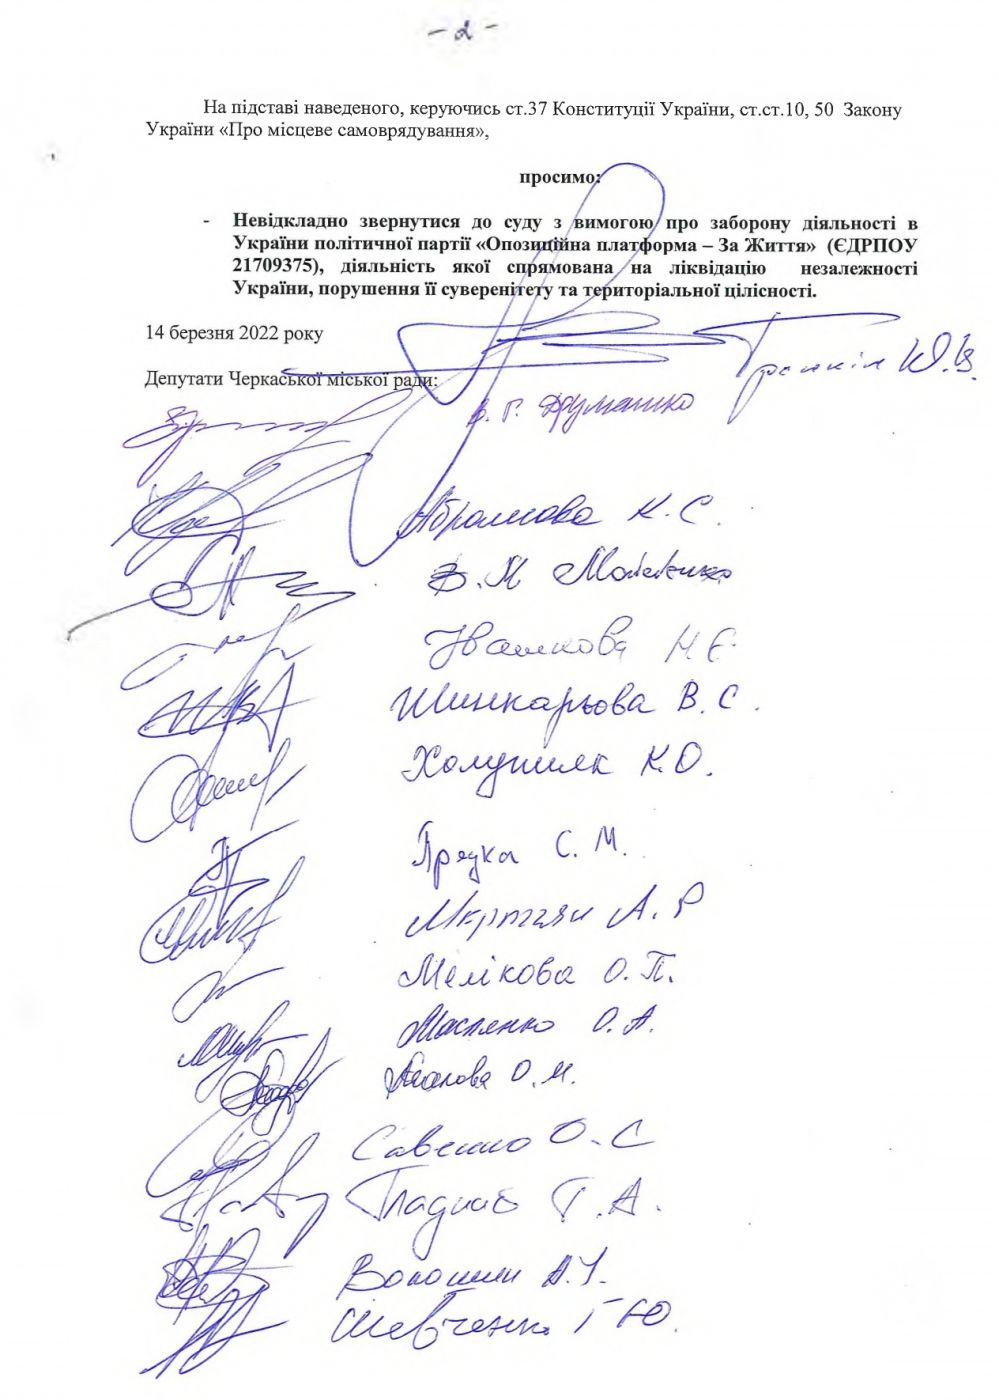 - 2 -
На підставі наведеного, керуючись ст.37 Конституції України, ст.ст.10, 50 Закону
України «Про місцеве самоврядування»,
просимо:
- Невідкладно звернутися до суду з вимогою про заборону діяльності в
України політичної партії «Опозиційна платформа – За Життя» (ЄДРПОУ
21709375), діяльність якої спрямована на ліквідацію незалежності
України, порушення її суверенітету та територіальної цілісності.
14 березня 2022 року
Тренкін Ю.В.
Депутати Черкаської міської ради:
В. Г. Друмашко
Абрамова К. С.
В. М
Івашкова Н. Є.
Шинкарьова В. С.
Холупняк К. О.
Прядка С. М.
Мкртчян А. Р
Мелікова О. П.
Масленко О. А.
О. М.
Савенко О. С
Гладкий Г. А.
Волошин А. І.
Шевченко Г Ю.